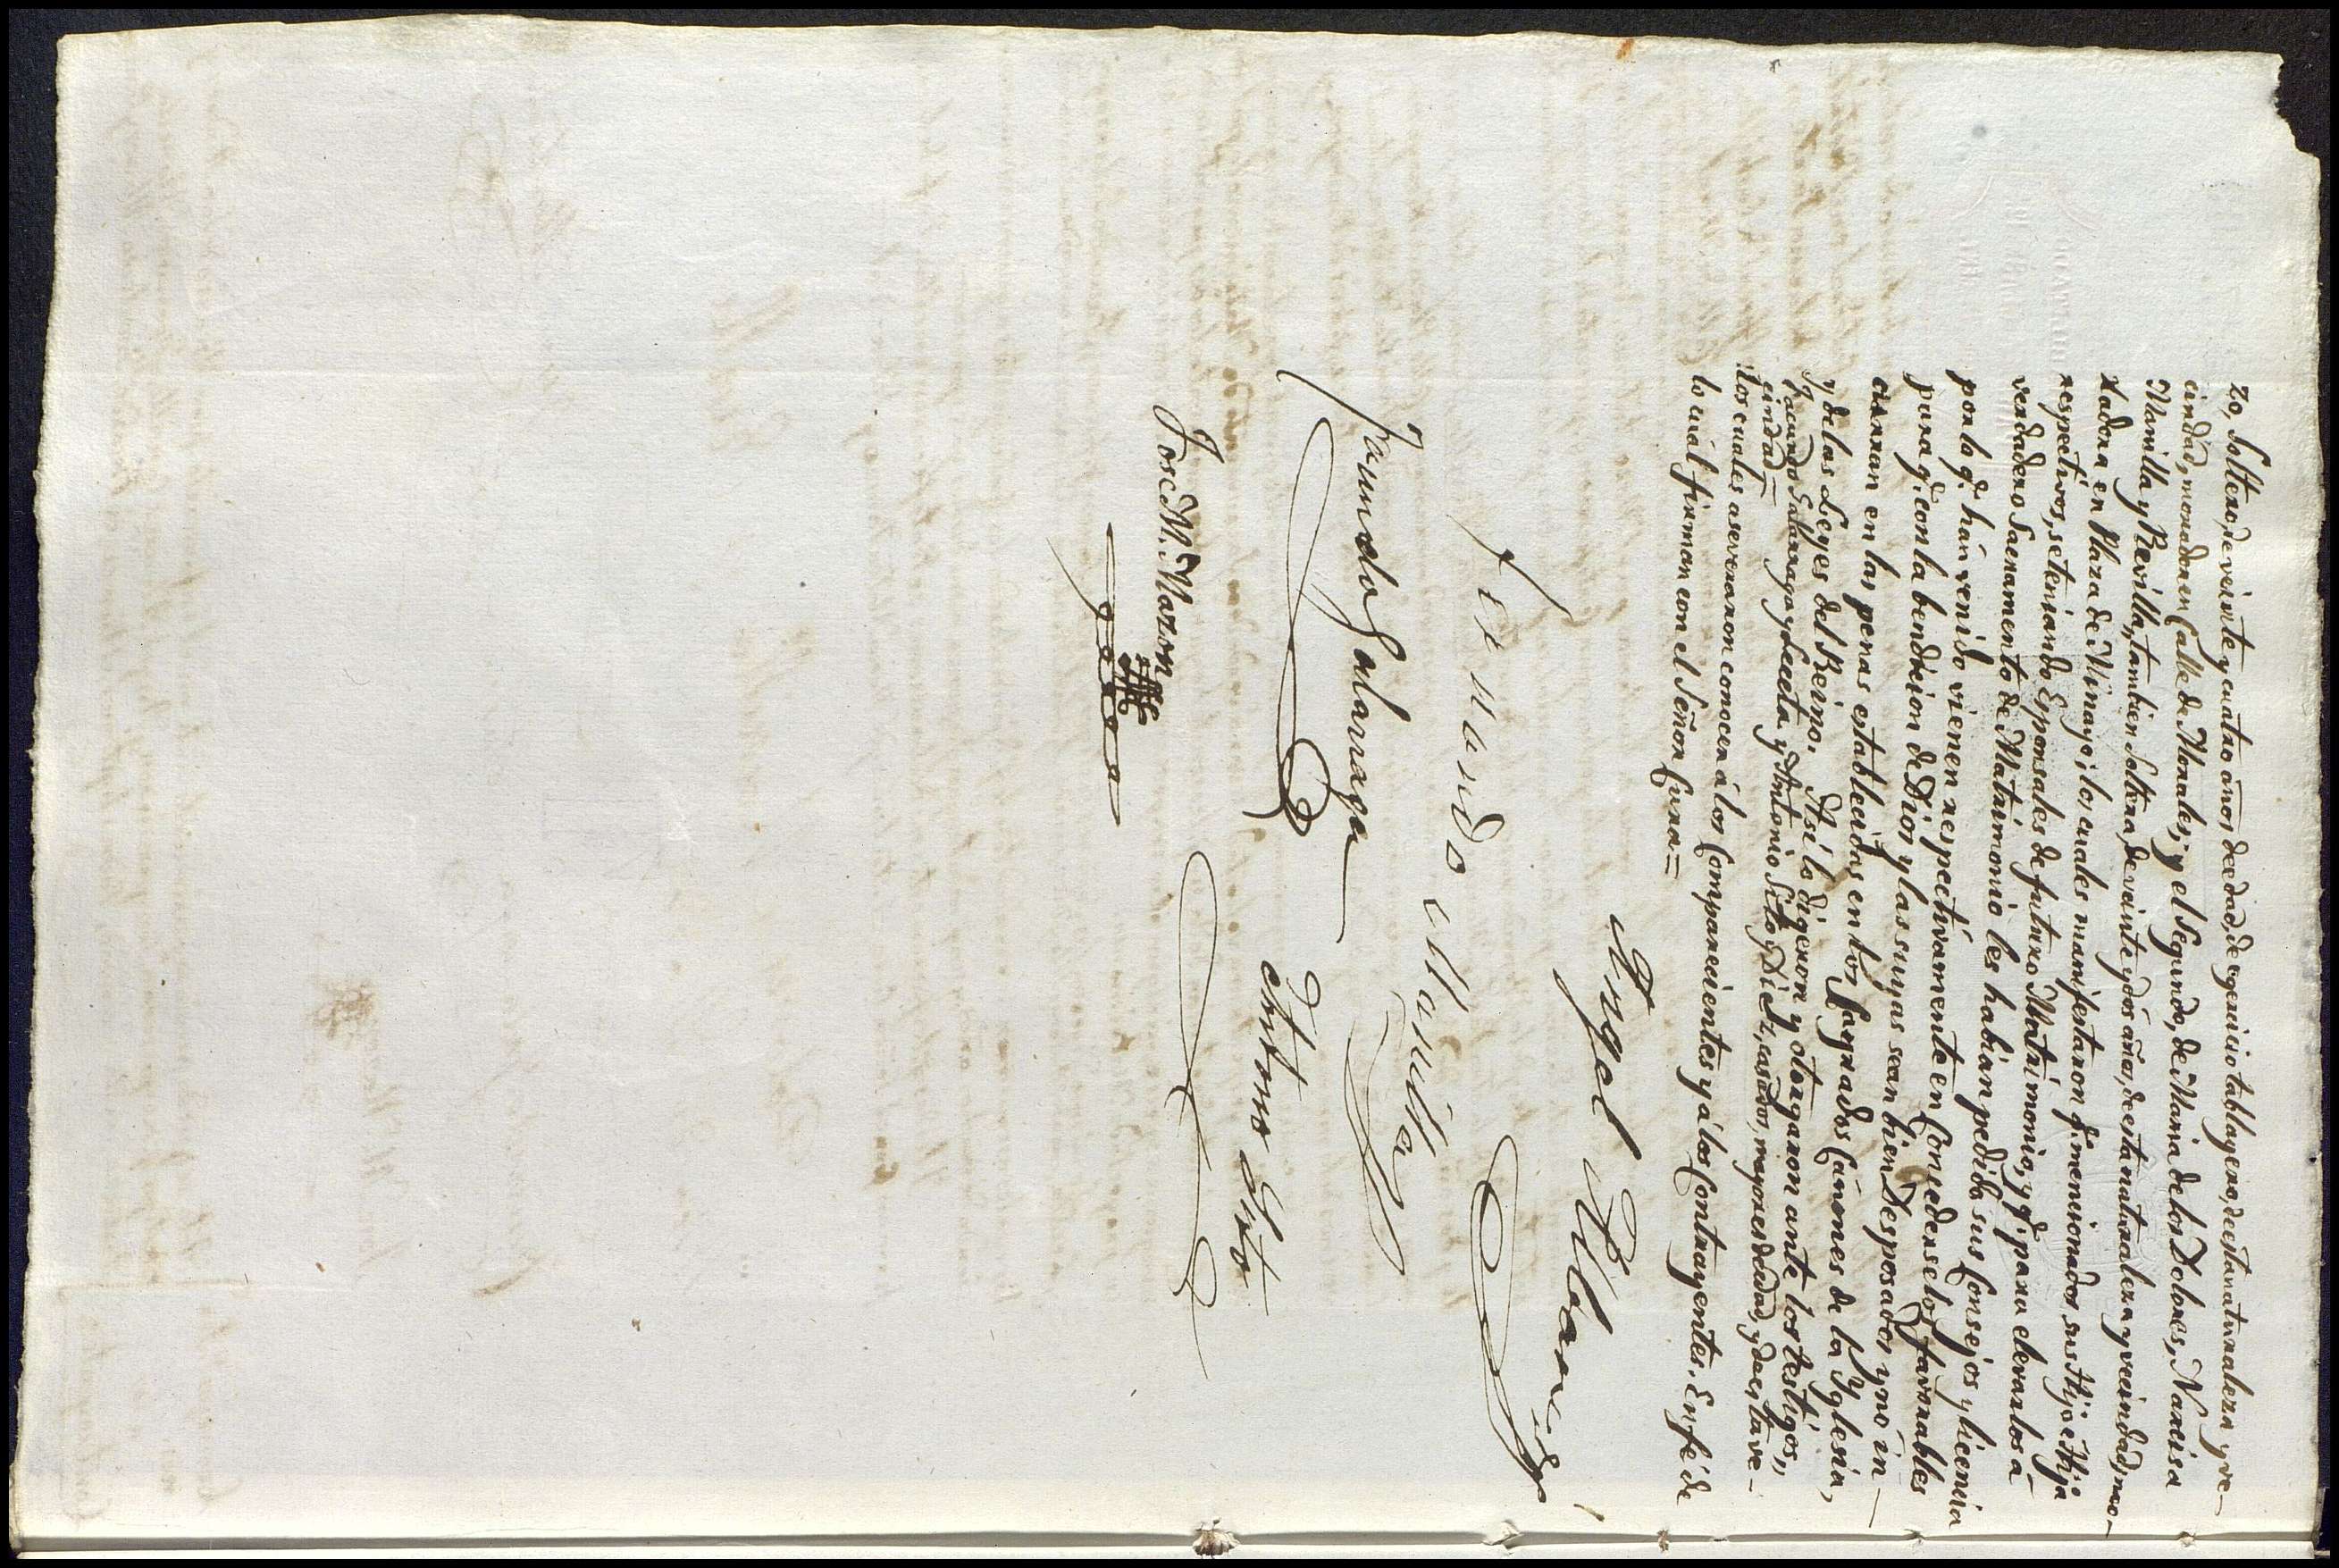 zo, Soltero, de veinte y cuatro años de edad, de egercicio tablagero, de esta naturaleza y ve-
cindad, morador en Calle de Morales; y el Segundo, de Maria de los Dolores, Narcisa
Manilla y Revilla, tambien Soltera, de veinte y dos años, de esta naturaleza y vecindad, mo-
radora en Plaza de Minayo; los cuales manifestaron q.e mencionados, sus Hijo é Hija
respectivos, se teniando Esponsales de futuro Matrimonio, y q.e para elevarlos á
verdadero Sacramento de Matrimonio les habian pedido sus Consejos y licencia
por lo q.e hán venido vienen respectivamente en Concederselos favorables
para q.e con la bendicion de Dios y las suyas sean bien Desposados y nó in-
curran en las penas establecidas en los Sagrados Cánones de la Yglesia,
y de las Leyes del Reino. Asi lo digeron y otorgaron ante los testigos,,
Facundo Galarraga y Leceta y Antonio Sito y Diez, casados, mayores de edad, y de esta ve-
cindad=
,, los cuales aseveraron conocer á los Comparecientes y á los Contrayentes. En fé de
lo cuál firman con el Señor Cura=
Angel Villan
Fernando Manilla
Facundo Galarraga
Antonio Sito
José M. Mazon